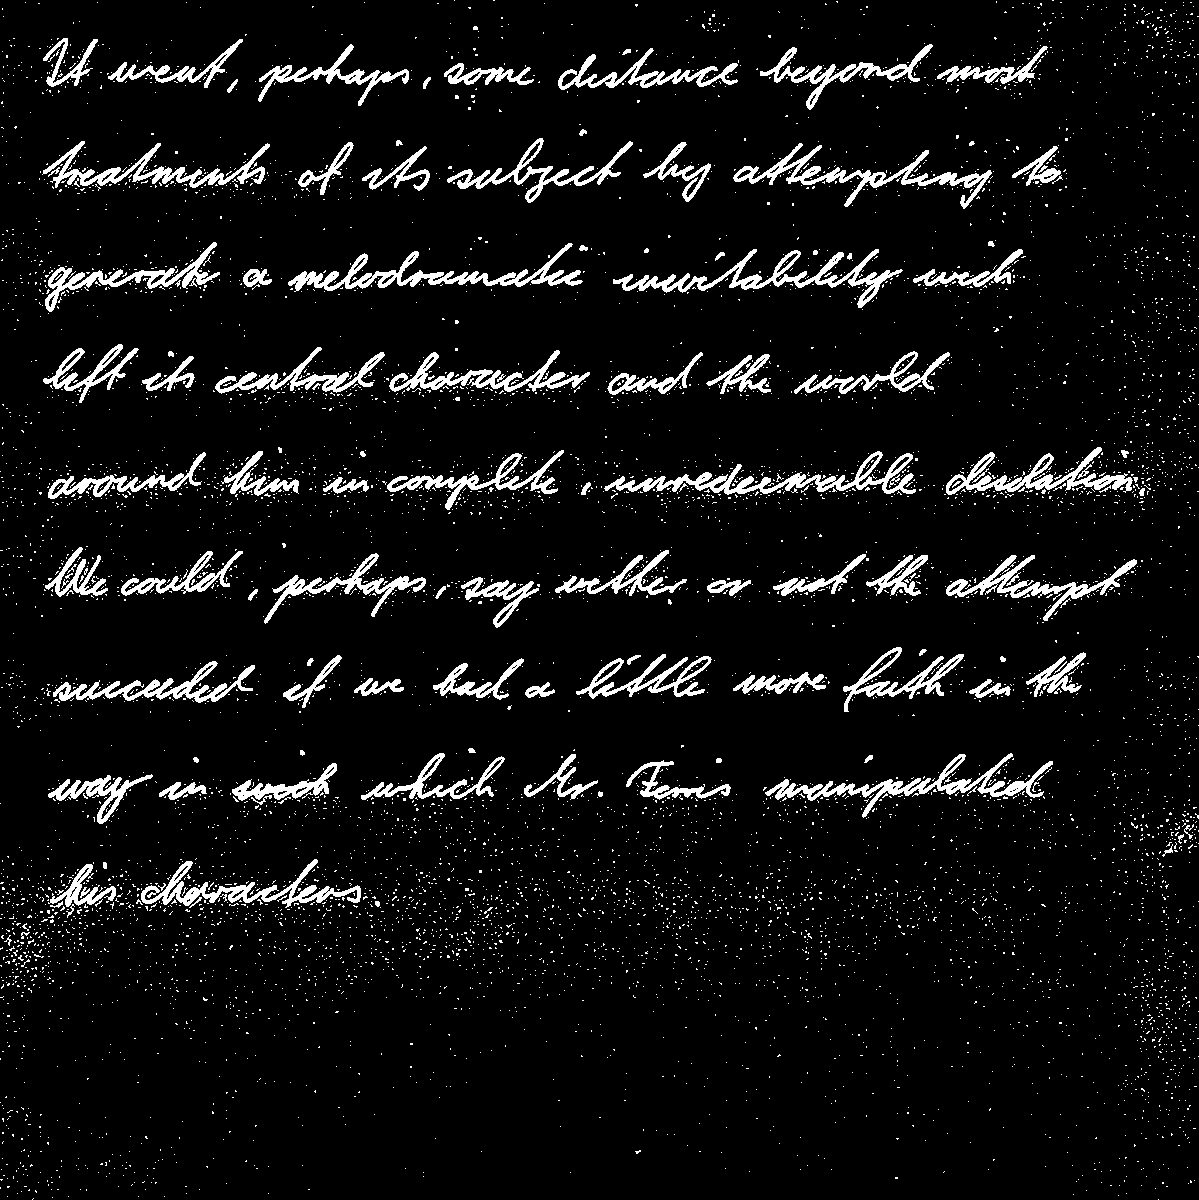 It went, perhaps, some distance beyond most
treatments of its subject by attempting to
generate a melodramatic inevitability wich
left its central character and the world
around him in complete, unredeemable desolation.
We could, perhaps, say wether or not the attempt
succeeded if we had a little more faith in the
way in which Mr. Ferris manipulated
his characters.